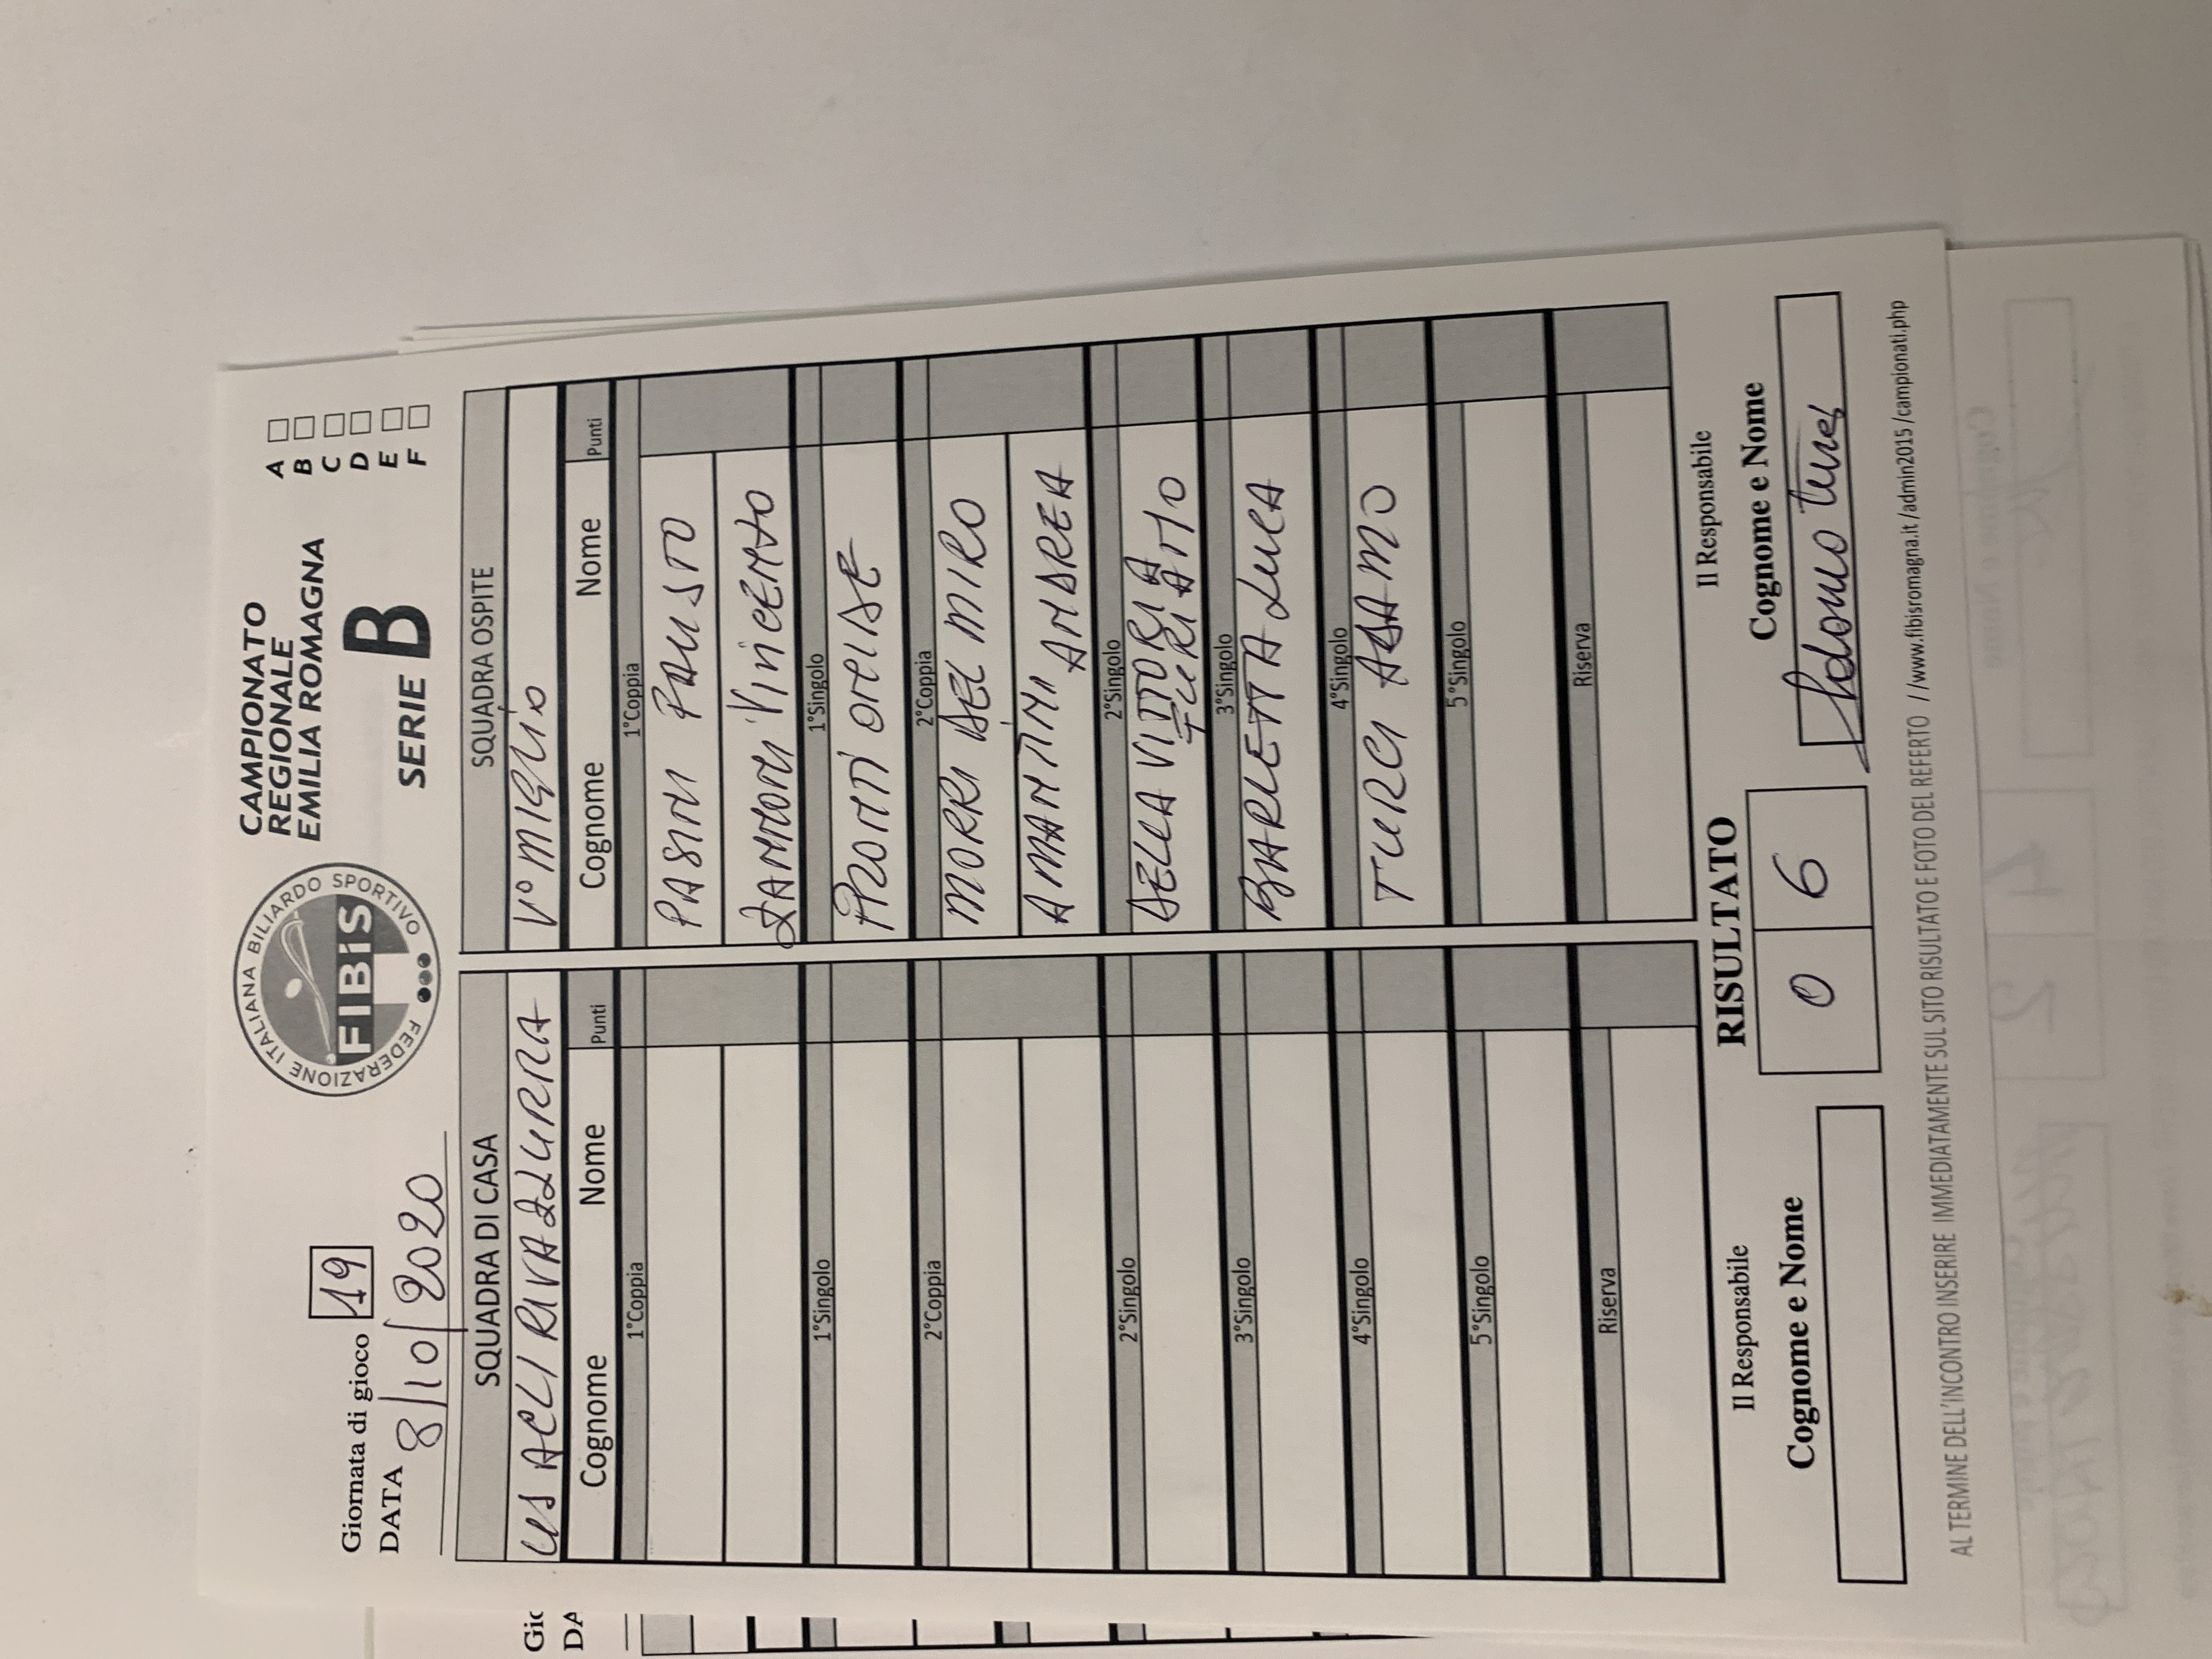 Giornata di gioco 19
DATA 8/10/2020
FEDERAZIONE ITALIANA BILIARDO SPORTIVO
FIBiS
CAMPIONATO
REGIONALE
EMILIA ROMAGNA
SERIE B
A
B
C
D
E
F
SQUADRA DI CASA
US ACLI RIVAZZURRA
Cognome Nome Punti
1°Coppia
1°Singolo
2°Coppia
2°Singolo
3°Singolo
4°Singolo
5°Singolo
Riserva
SQUADRA OSPITE
V° MIGLIO
Cognome Nome Punti
1°Coppia
PASINI FAUSTO
ZANNONI VINCENZO
1°Singolo
PRONTI
2°Coppia
MORRI DEL MIRO
AMANTINI ANDREA
2°Singolo
DELLA VITTORIA
TURIATIO
3°Singolo
BARLETTA LUCA
4°Singolo
TURCI ADAMO
5°Singolo
Riserva
Il Responsabile
Cognome e Nome
RISULTATO
0 6
Il Responsabile
Cognome e Nome
Adamo Turci
AL TERMINE DELL'INCONTRO INSERIRE IMMEDIATAMENTE SUL SITO RISULTATO E FOTO DEL REFERTO //www.fibisromagna.it/admin2015/campionati.php